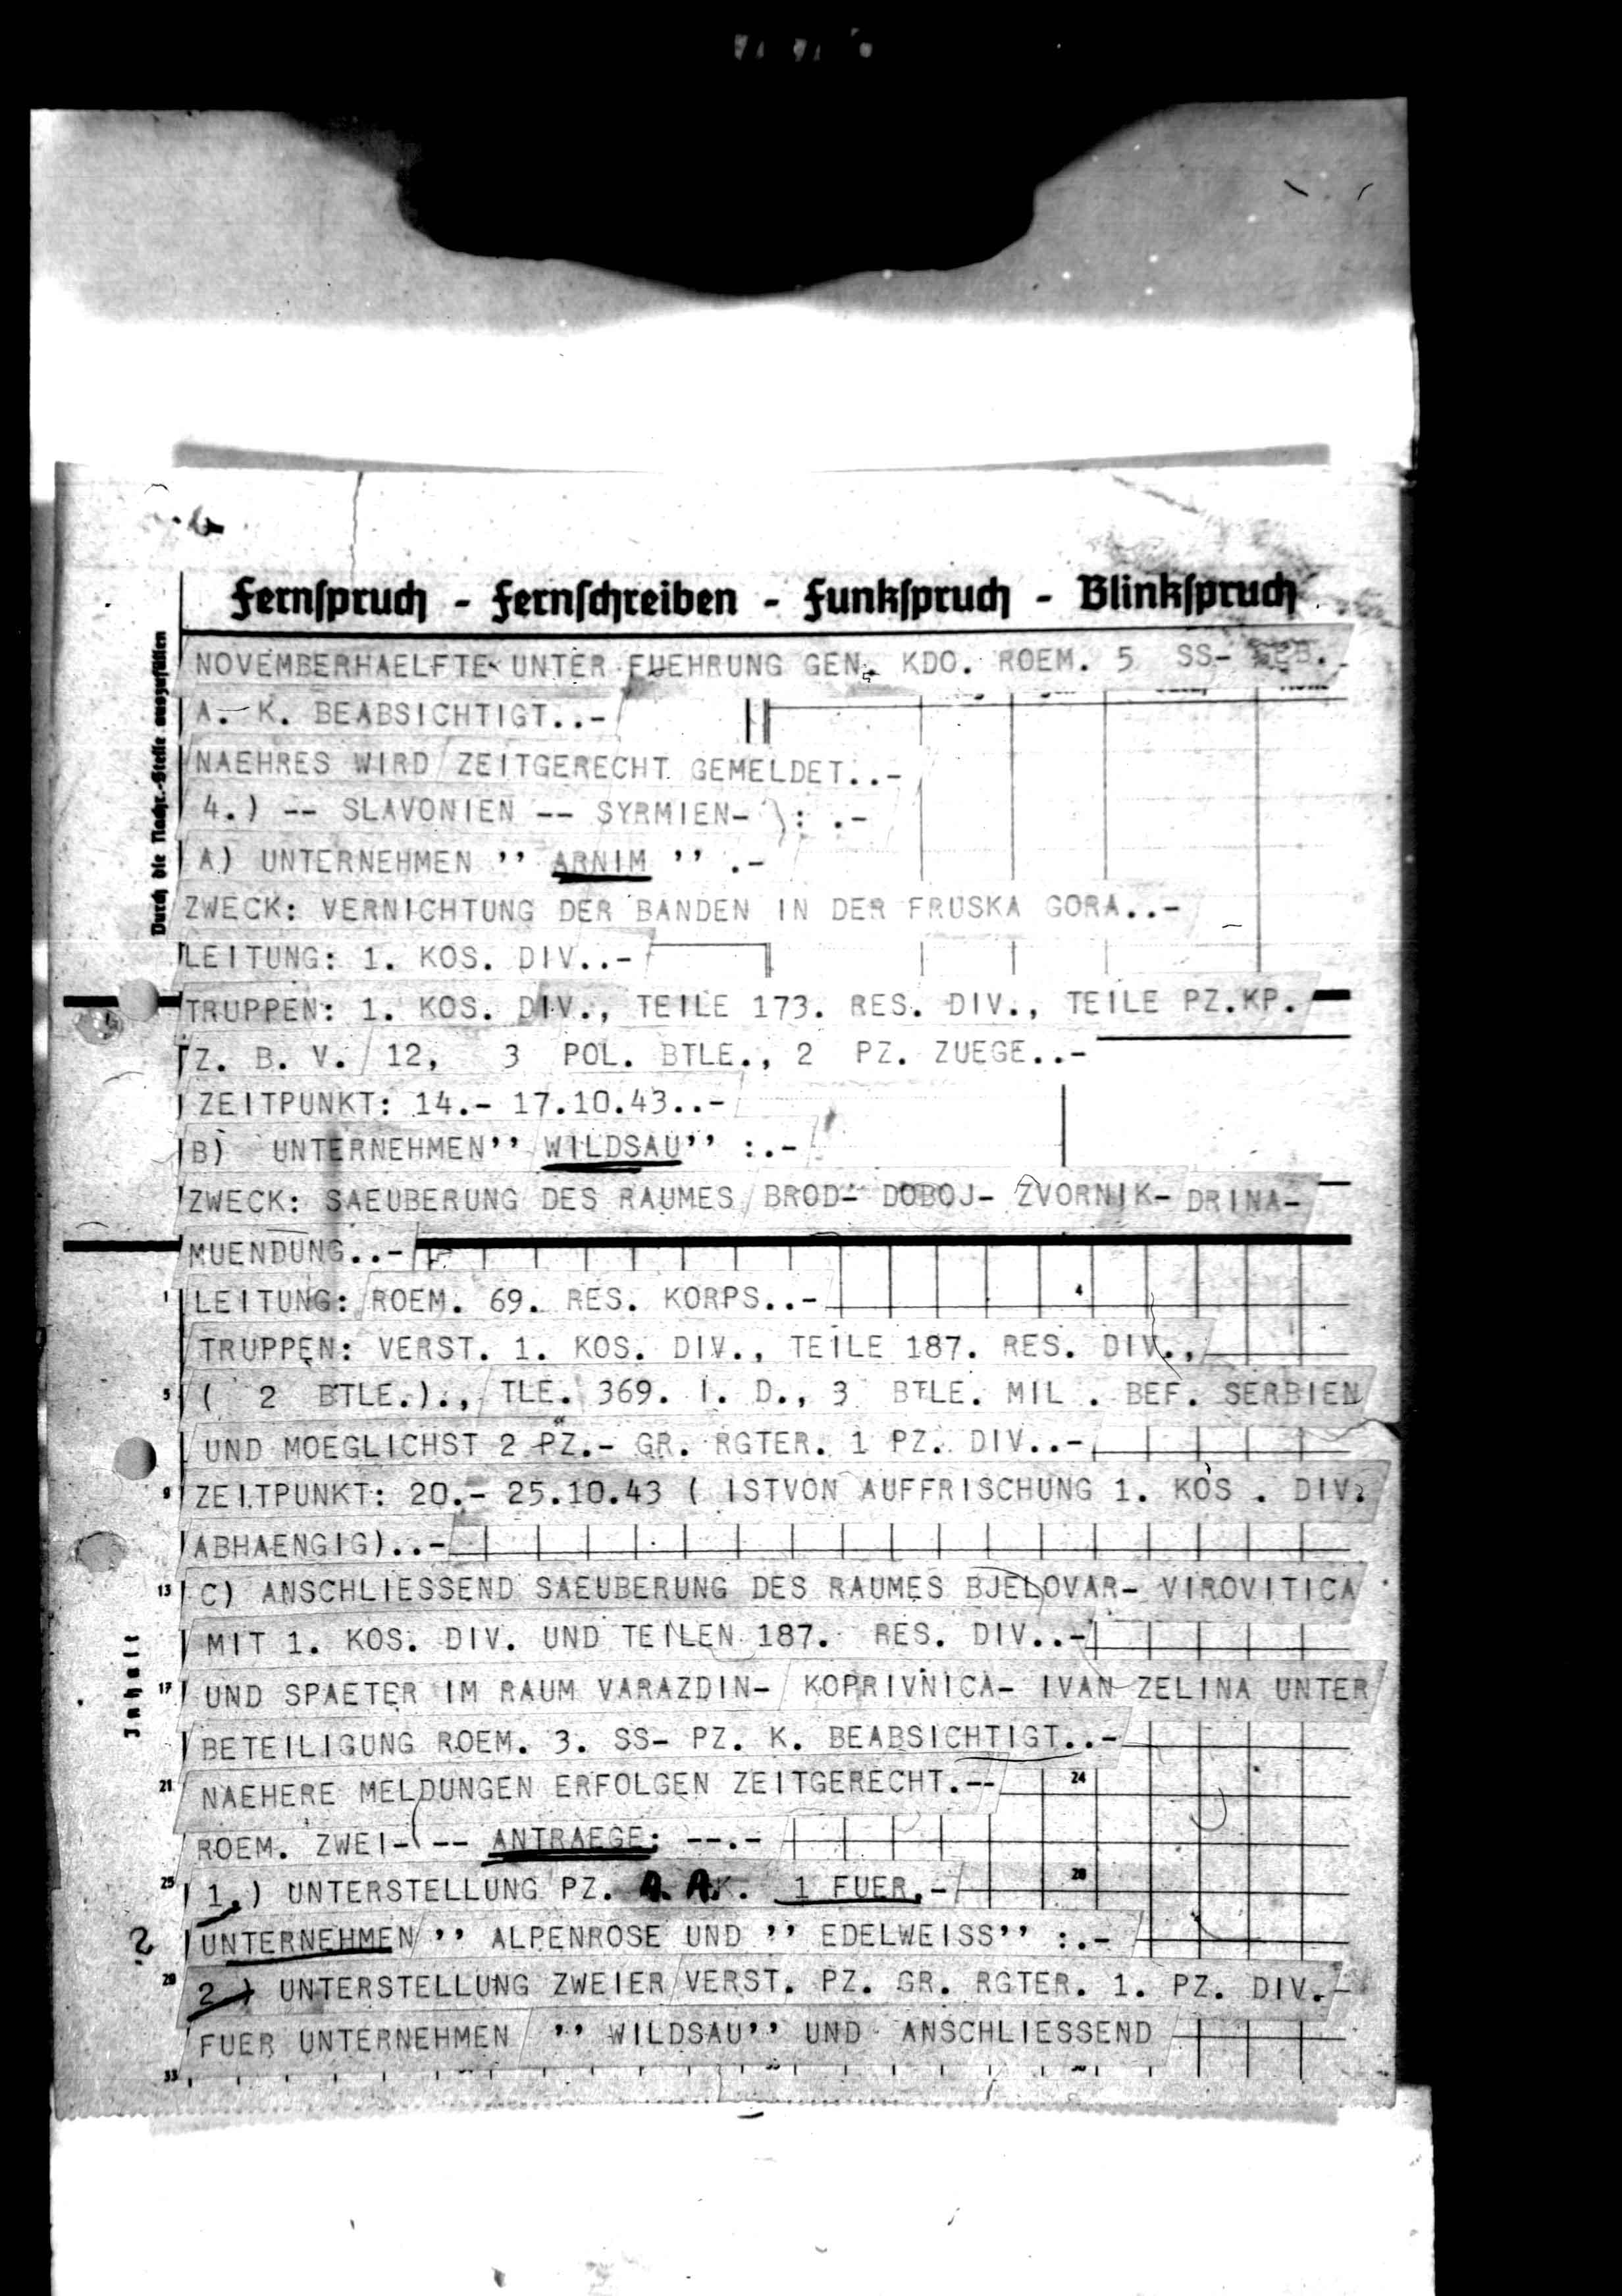 Fernspruch - Fernschreiben - Funkspruch - Blinkspruch
Durch die Nachr.-Stelle auszufüllen
NOVEMBERHAELFTE UNTER FUEHRUNG GEN. KDO. ROEM. 5 SS-
A. K. BEABSICHTIGT..-
NAEHRES WIRD ZEITGERECHT GEMELDET..-
4.) -- SLAVONIEN -- SYRMIEN- ): .-
A) UNTERNEHMEN '' ARNIM '' .-
ZWECK: VERNICHTUNG DER BANDEN IN DER FRUSKA GORA..-
LEITUNG: 1. KOS. DIV..-
TRUPPEN: 1. KOS. DIV., TEILE 173. RES. DIV., TEILE PZ.KP.
Z. B. V. 12, 3 POL. BTLE., 2 PZ. ZUEGE..-
ZEITPUNKT: 14.- 17.10.43..-
B) UNTERNEHMEN'' WILDSAU'' :.-
ZWECK: SAEUBERUNG DES RAUMES BROD- DOBOJ- ZVORNIK- DRINA-
MUENDUNG..-
1 LEITUNG: ROEM. 69. RES. KORPS..- 4
TRUPPEN: VERST. 1. KOS. DIV., TEILE 187. RES. DIV.,
5 ( 2 BTLE.)., TLE. 369. I. D., 3 BTLE. MIL . BEF. SERBIEN
UND MOEGLICHST 2 PZ.- GR. RGTER. 1 PZ. DIV..-
9 ZEITPUNKT: 20.- 25.10.43 ( ISTVON AUFFRISCHUNG 1. KOS . DIV.
ABHAENGIG)..-
13 C) ANSCHLIESSEND SAEUBERUNG DES RAUMES BJELOVAR- VIROVITICA
MIT 1. KOS. DIV. UND TEILEN 187. RES. DIV..-
Inhalt
17 UND SPAETER IM RAUM VARAZDIN- KOPRIVNICA- IVAN ZELINA UNTER
BETEILIGUNG ROEM. 3. SS- PZ. K. BEABSICHTIGT..-
21 NAEHERE MELDUNGEN ERFOLGEN ZEITGERECHT.-- 24
ROEM. ZWEI- -- ANTRAEGE: --.-
25 1.) UNTERSTELLUNG PZ. A. A. 1 FUER.- 28
? UNTERNEHMEN '' ALPENROSE UND '' EDELWEISS'' :.-
29 2.) UNTERSTELLUNG ZWEIER VERST. PZ. GR. RGTER. 1. PZ. DIV.-
FUER UNTERNEHMEN '' WILDSAU'' UND ANSCHLIESSEND
33